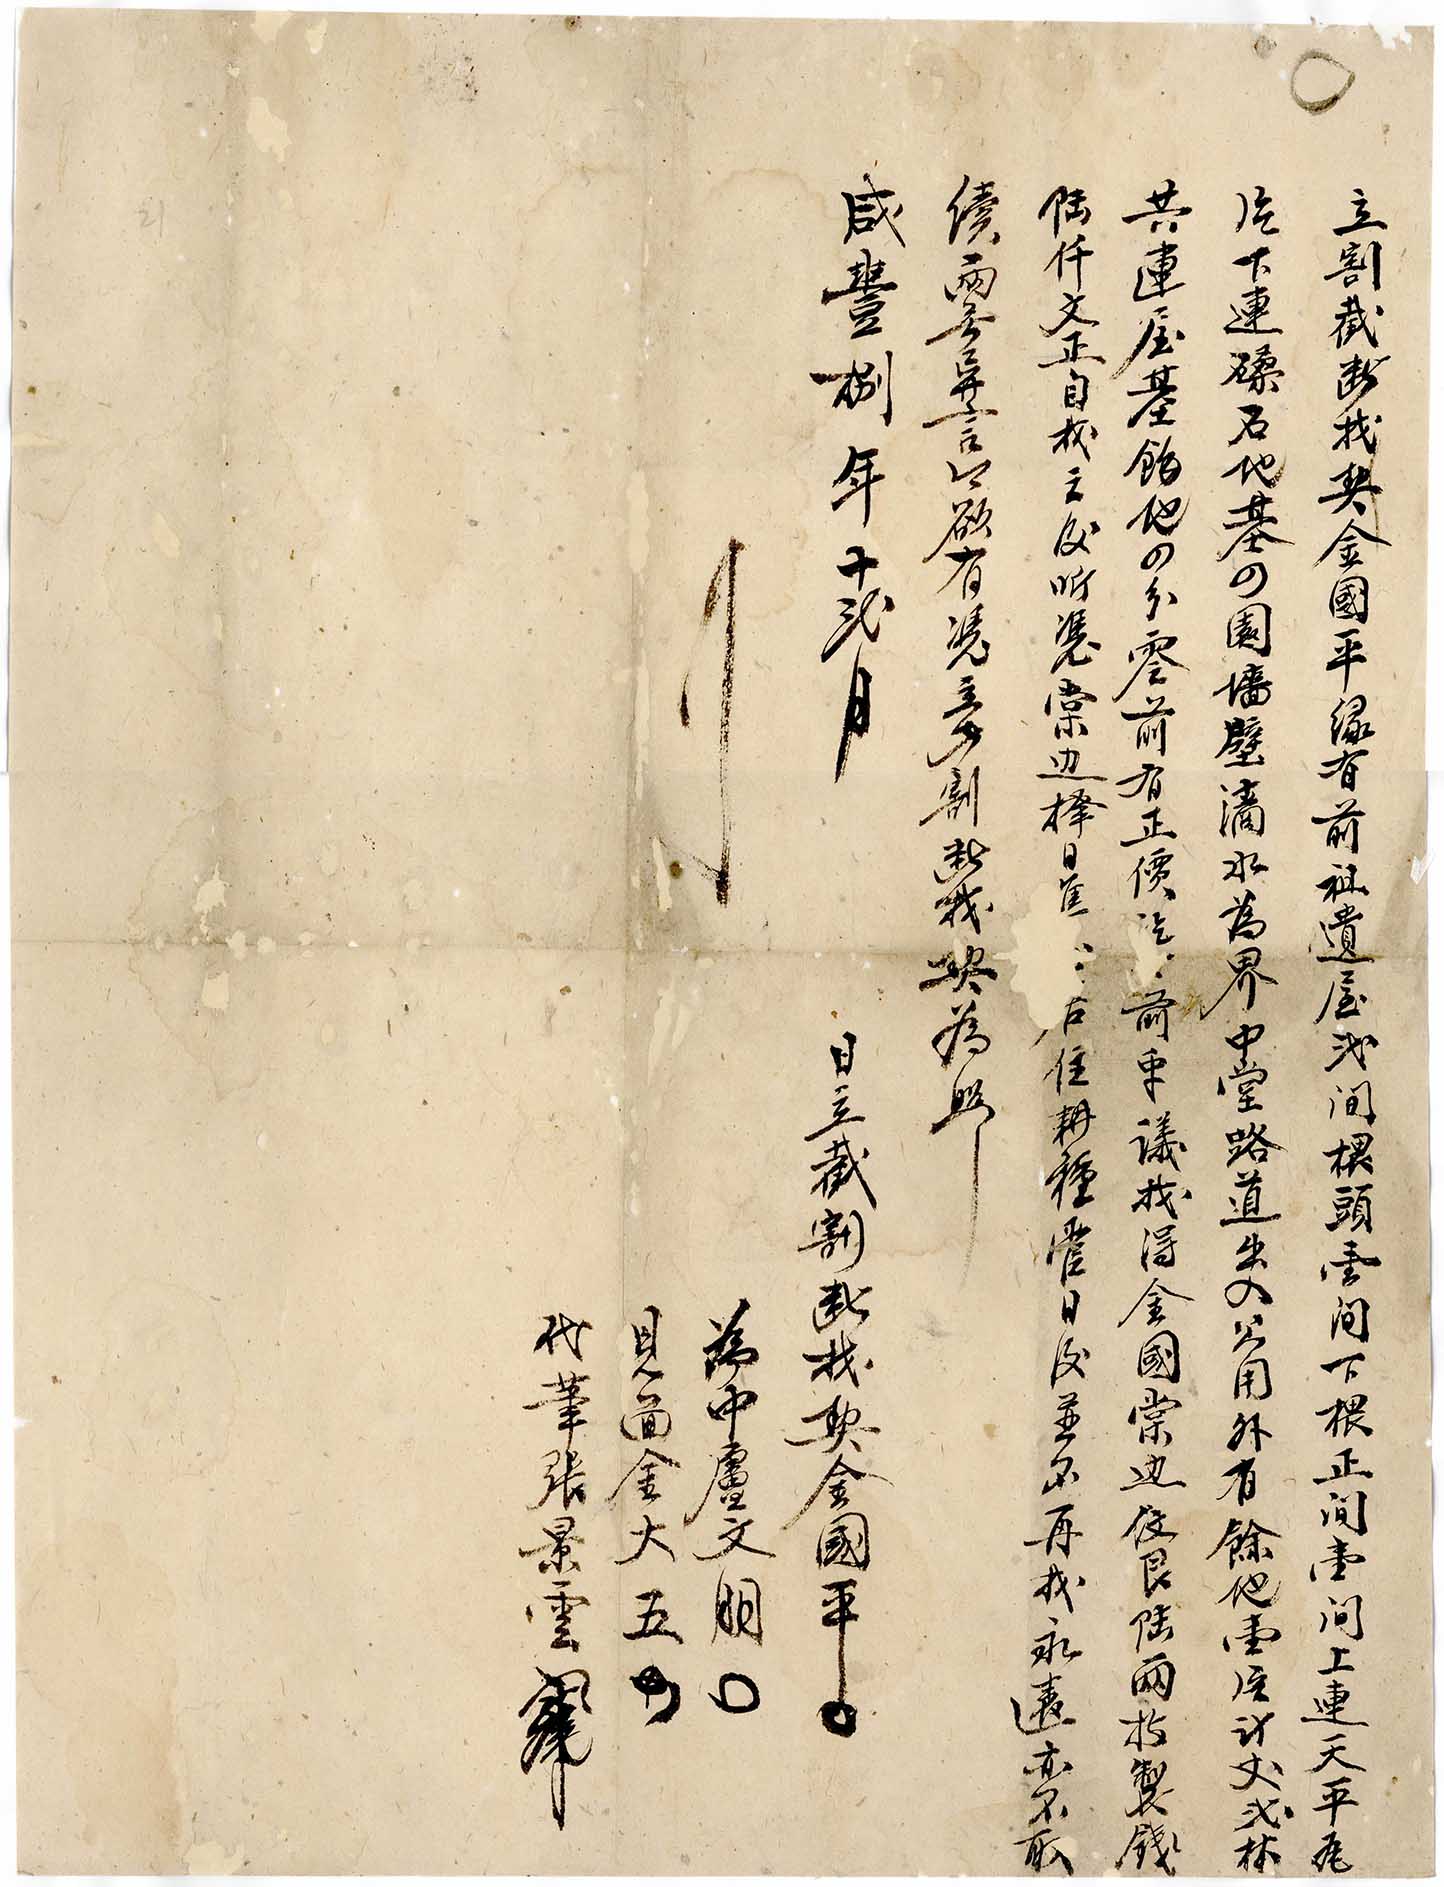 立割截断找契金國平緣有前祖遺屋弍间根頭壹间下根正间壹间上連天平瓦
片下連磉石地基四圍墙壁滴水為界中堂路道出入公用外有餘地壹片計丈弍林
共連屋基餘地四分零前有正價訖前手議找得金國棠边佼艮陆兩抄製錢
陆仟文正自找之後听凭棠边擇日居住耕種管日後並不再找永遠亦不取
續兩無異言今欲有凭立此割断找契為照
咸豐捌年十弍月
日立截割断找契金國平
為中盧文明
見面金大五
代筆張景雲